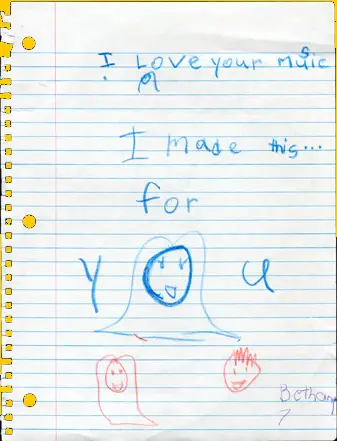 I Love your music
I made this...
for
Y U
Bethany
7